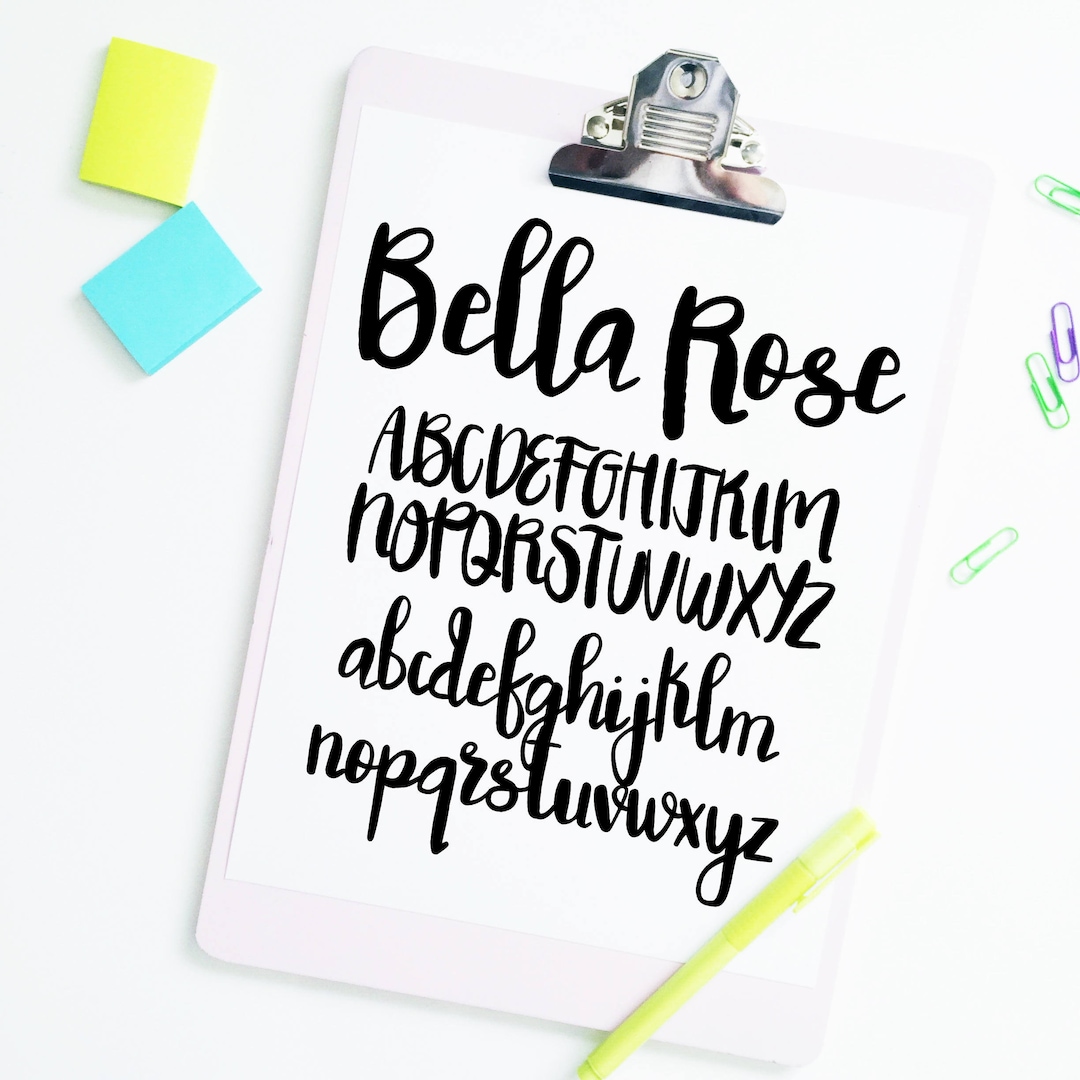 Bella Rose
ABCDEFGHIJKLM
NOPQRSTUVWXYZ
abcdefghijklm
nopqrstuvwxyz